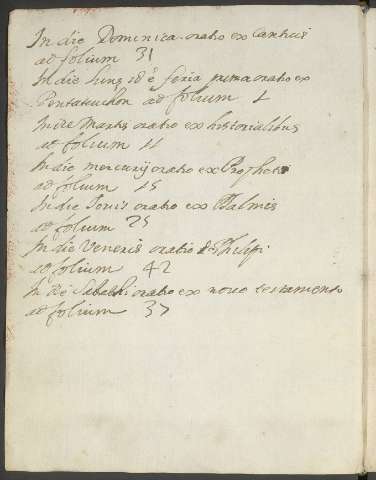 In die Dominica oratio ex Canticis
ad folium 31
In die Lunæ id ẽ feria prima oratio ex
Pentateuchon ad folium 1
In die Martis oratio ex historialibus
ad folium 11
In die mercurij oratio ex Prophetis
ad folium 15
In die Jovis oratio ex Psalmis
ad folium 25
In die Veneris oratio
ad folium 42
In die Sabathi oratio ex novo testamento
ad folium 37